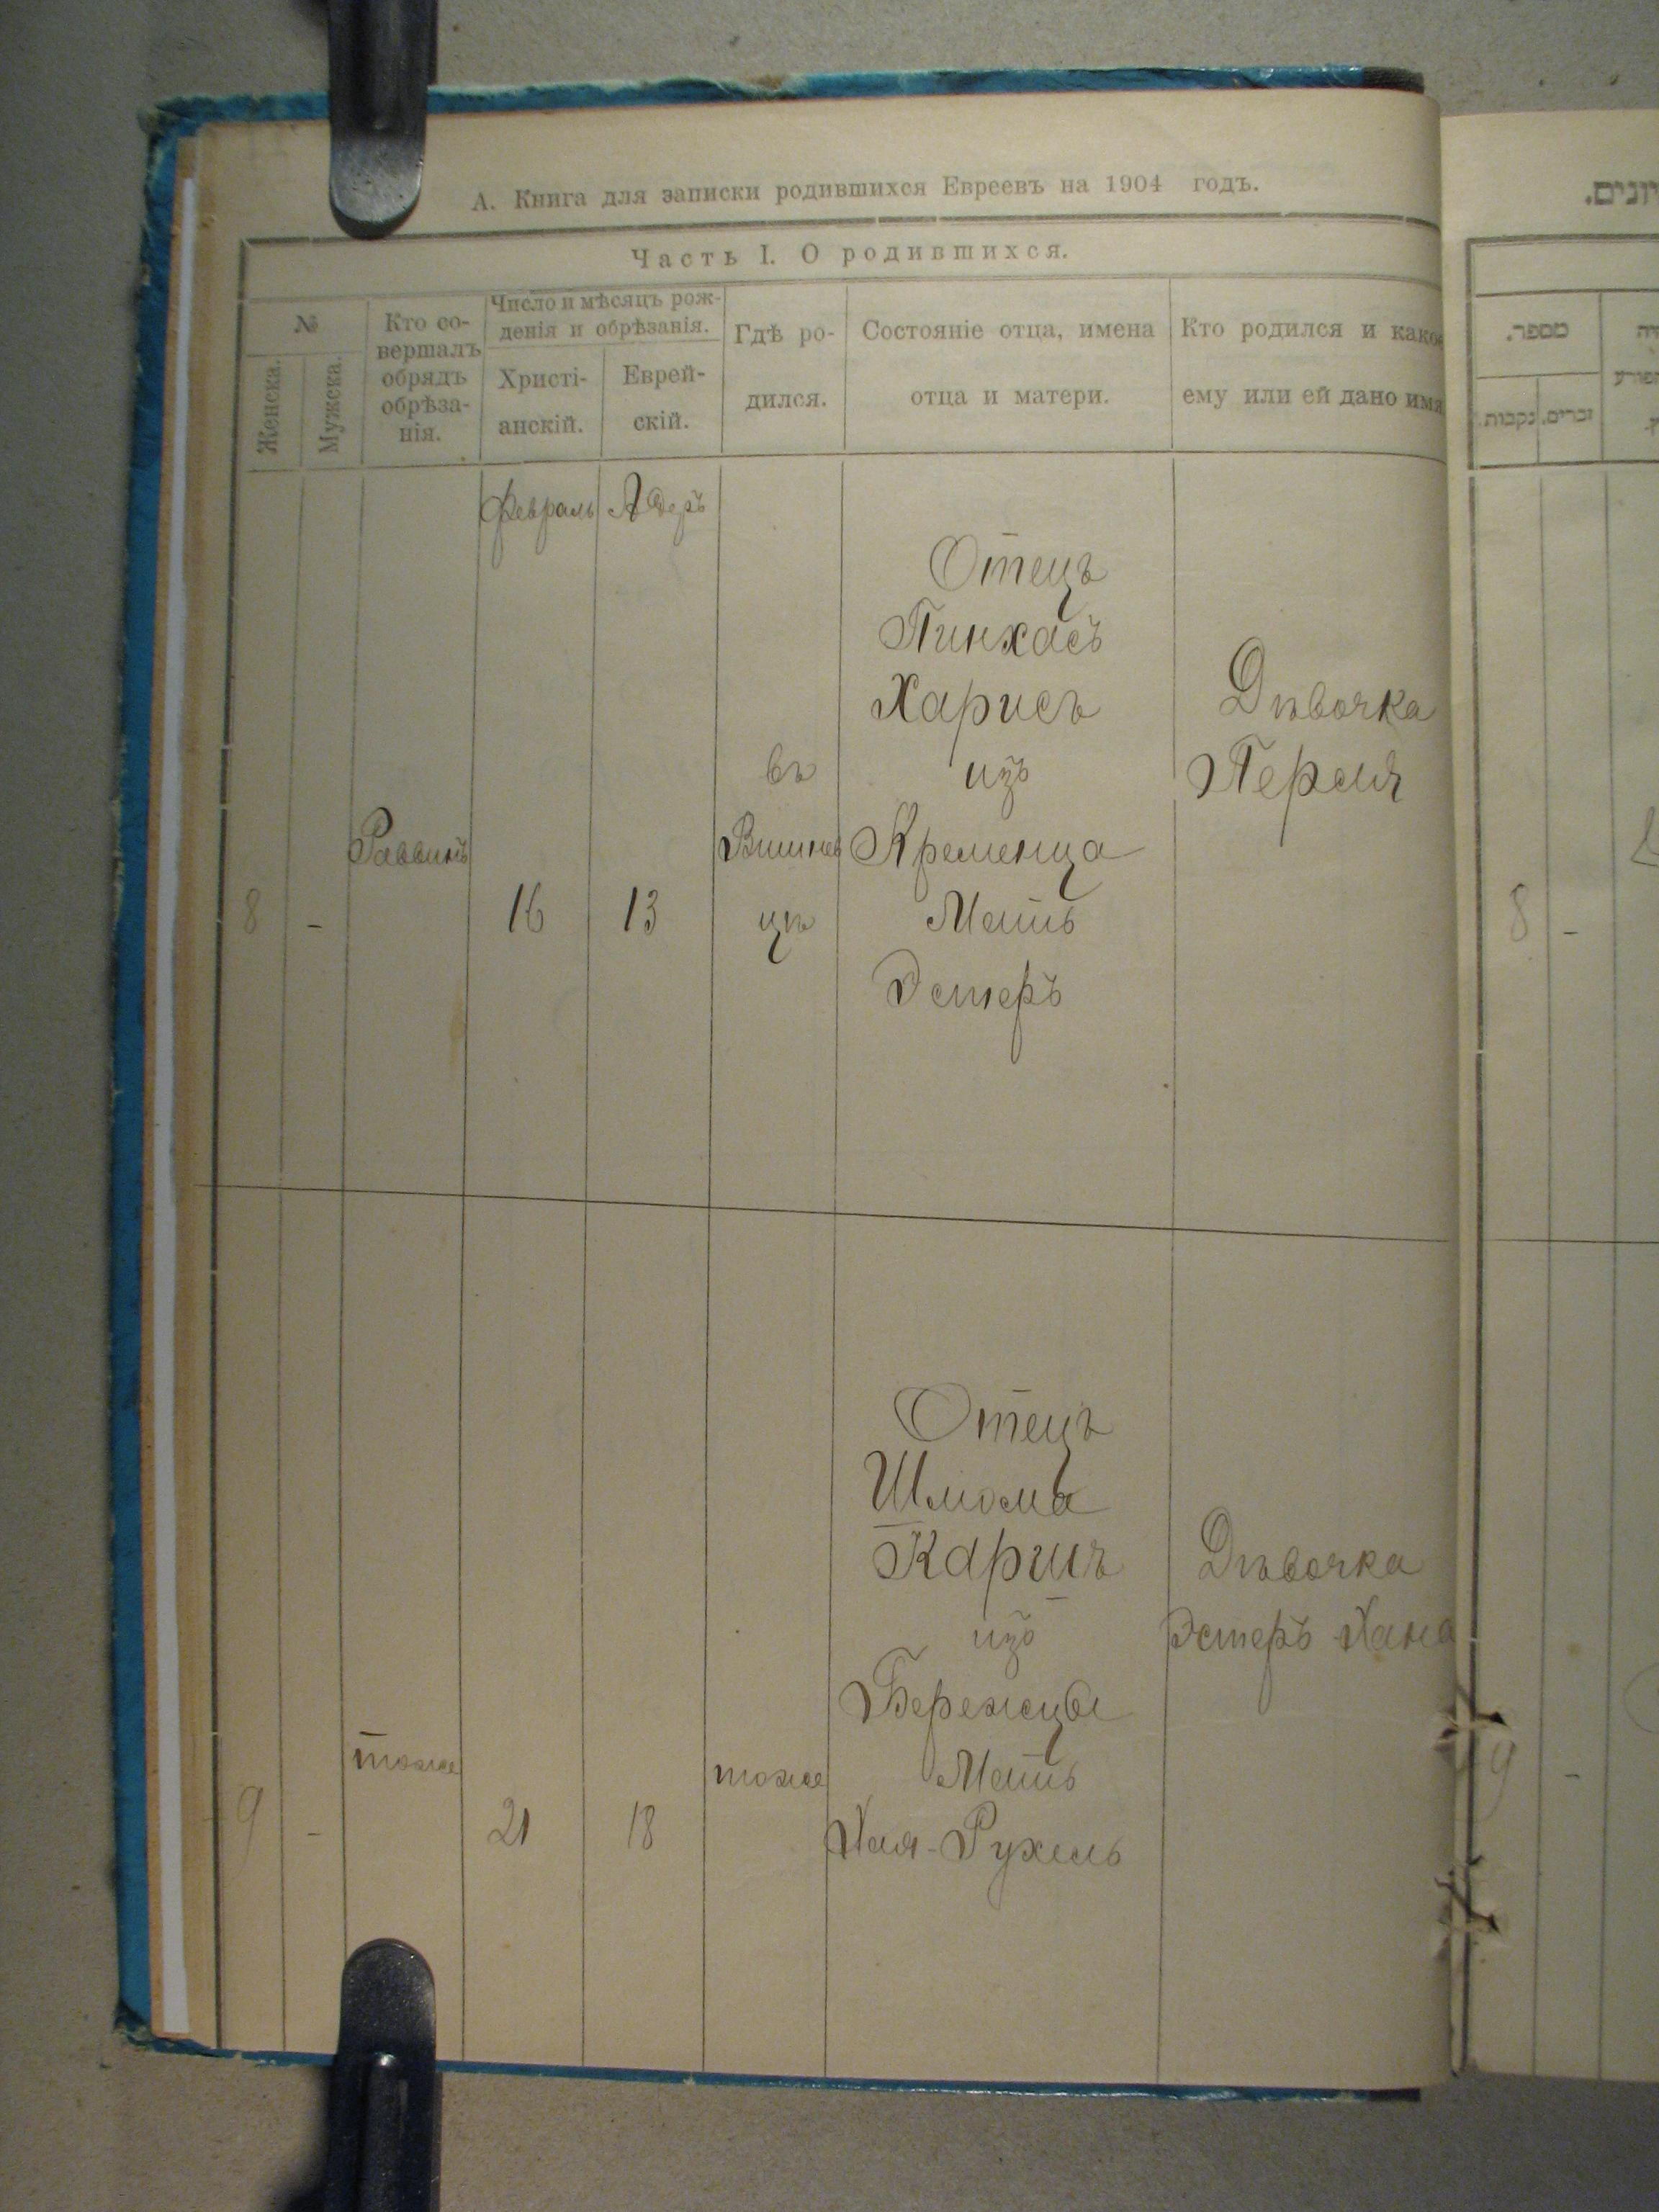 А. Книга для записки родившихся Евреевъ на 1904 годъ.
Часть I. О родившихся.
№
Женска.
Мужска.
Кто со-
вершалъ
обрядъ
обрѣза-
нія.
Число и мѣсяцъ рож-
денія и обрѣзанія.
Христі-
анскій.
Еврей-
скій.
Гдѣ ро-
дился.
Состояніе отца, имена
отца и матери.
Кто родился и какое
ему или ей дано имя
Февраль
Адеръ
8
-
Раввинъ
16
13
въ
Вишнев
цѣ
Отецъ
Пинхасъ
Харисъ
изъ
Кременца
Мать
Эстеръ
Дѣвочка
Перля
9
-
тоже
21
18
тоже
Отецъ
Шлиома
Каришъ
изъ
Бережцы
Мать
Хая-Рухель
Дѣвочка
Эстеръ Хана
מספר.
זכרים.
נקבות.
8
-
9
-